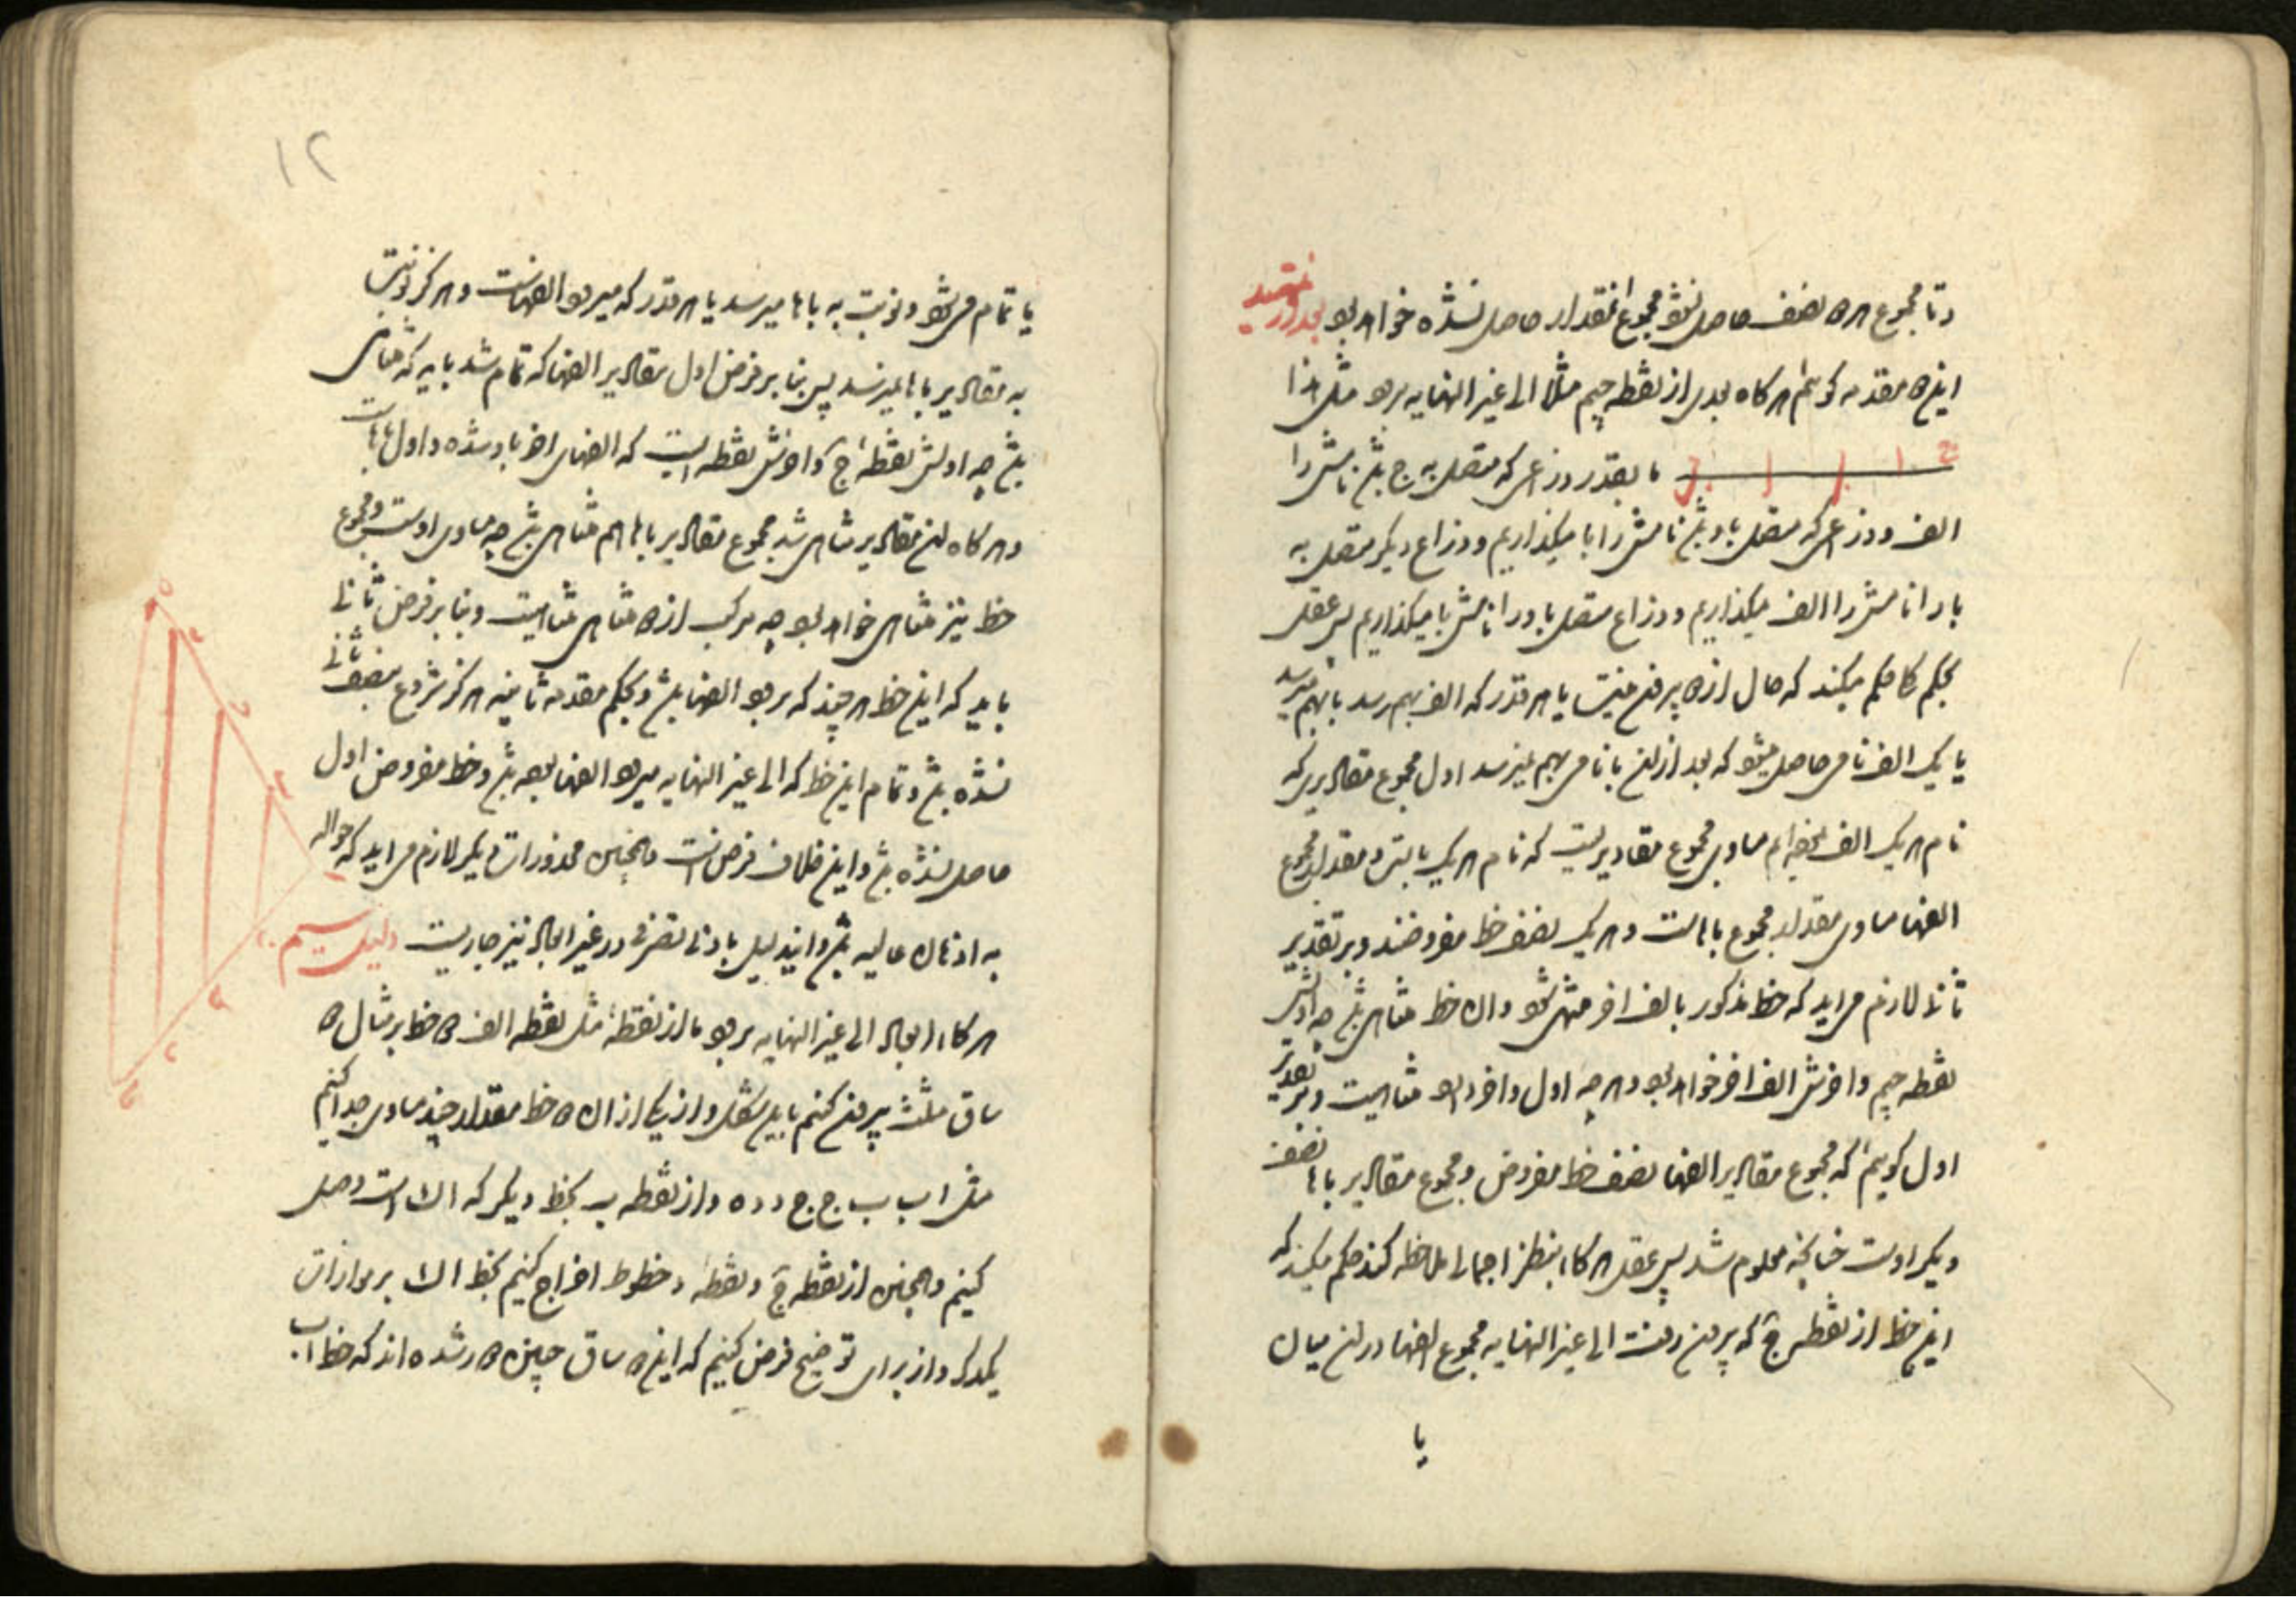 و تا مجموع هر دو نصف حاصل نشود مجموع آنمقدار حاصل نشده خواهد بود بعد از تمهید
این دو مقدمه گوئیم هر گاه بعدی از نقطه جیم مثلا الی غیر النهایه برود مثل هذا
ما بقدر ذرعی که متصل به ج باشد نامش را
الف و ذرعی که متصل باو باشد نامش را با میگذاریم و ذراع دیگر متصل به
با را نامش را الف میگذاریم و ذراع متصل باو را نامش با میگذاریم پس عقل
بحکم کلی حکم میکند که حال ازین دو بیرون نیست یا هر قدر که الف بهم رسد با بهم میرسد
یا یک الف نامی حاصل میشود که بعد از آن با نامی بهم نمیرسد اول مجموع مقادیری که
نام هر یک الف مساوی مجموع مقادیریست که نام هر یک با و مقدار مجموع
الفها مساوی مقدار مجموع باهاست و هر یک نصف خط مفروضند و بر تقدیر
ثانی لازم می اید که خط مذکور بالف اخر منتهی شود و ان خط متناهی باشد چه اولش
نقطه جیم و اخرش الف اخر خواهد بود و هر چه اول و اخر دارد متناهیست و بر تقدیر
اول گوئیم که مجموع مقادیر الفها نصف خط مفروض و مجموع مقادیر باها نصف
دیگر اوست چنانچه معلوم شد پس عقل هر گاه بنظر اجمالی ملاحظه کند حکم میکند که
این خط از نقطه ج که بیرون رفت الی غیر النهایه مجموع الفها در ان میان
یا
۱۲
یا تمام می شود و نوبت به باها میرسد یا هر قدر که میرود الفهاست و هرگز نوبت
به مقادیر باها نمیرسد پس بنا بر فرض اول مقادیر الفها که تمام شد باید که متناهی
باشد چه اولش نقطه ج و اخرش نقطه ایست که الفهای اخر باو شده و اول باهاست
و هر گاه این مقادیر متناهی شد مجموع مقادیر باها هم متناهی باشد چه مساوی اوست و مجموع
خط نیز متناهی خواهد بود چه مرکب از دو متناهی متناهیست و بنا بر فرض ثانی
باید که این خط هر چند که برود الفها باشد و بحکم مقدمه ثانیه هرگز شروع بنصف ثانی
نشده باشد و تمام این خط که الی غیر النهایه میرود الفها بوده باشد و خط مفروض اول
حاصل نشده باشد و این خلاف فرض است و همچنین محذورات دیگر لازم می اید که حواله
به اذهان عالیه باشد و ایندلیل بادنی تصرفی در غیر ابعاد نیز جاریست دلیل سیم
هر گاه ابعاد الی غیر النهایه برود ما از نقطهٔ مثل نقطه الف دو خط بر مثال دو
ساق مثلث بیرون کنیم باین شکل و از یکی از ان دو خط مقدار چند مساوی جدا کنیم
مثل ا ب ب ج ج د د ه و از نقطه ب بخط دیگر که است وصل
کنیم و همچنین از نقطه ج و نقطه د خطوط اخراج کنیم بخط بر موازات
یکدیگر و از برای توضیح فرض کنیم که این دو ساق چنین دور شده اند که خط ا ب